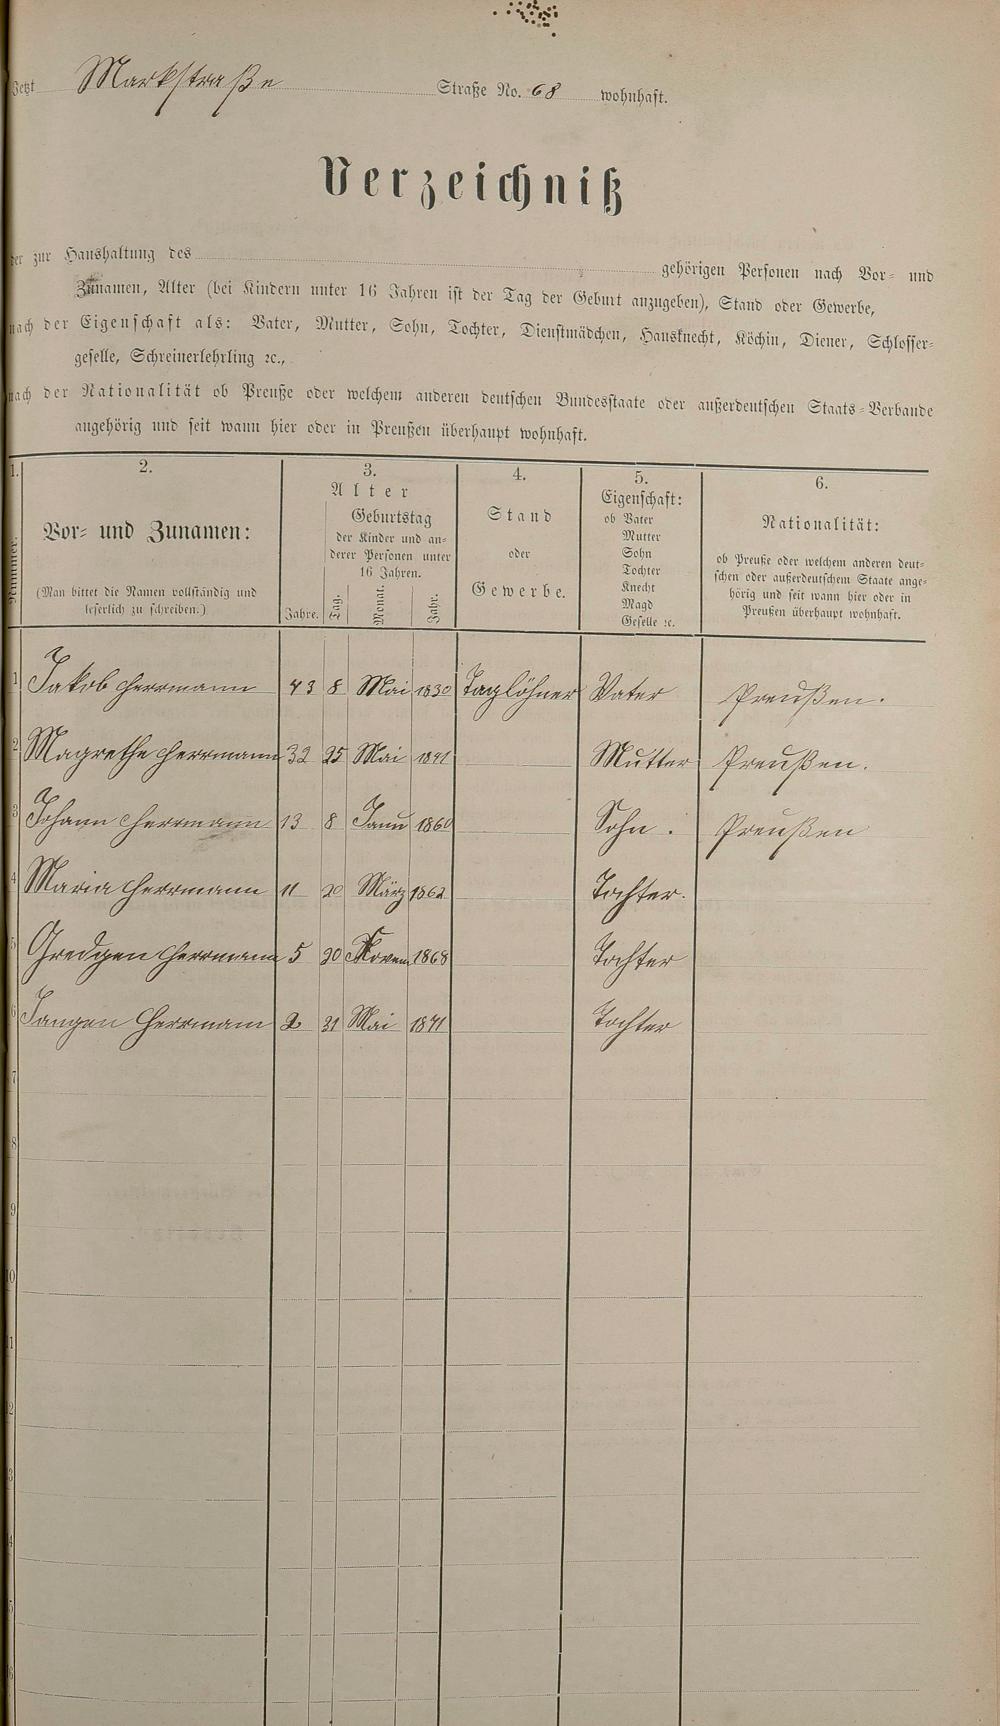 Jetzt Markstraße Straße No. 68 wohnhaft.
Verzeichniß
der zur Haushaltung des gehörigen Personen nach Vor- und
Zunamen, Alter (bei Kindern unter 16 Jahren ist der Tag der Geburt anzugeben), Stand oder Gewerbe,
nach der Eigenschaft als: Vater, Mutter, Sohn, Tochter, Dienstmädchen, Hausknecht, Köchin, Diener, Schlosser-
geselle, Schreinerlehrling ꝛc.,
nach der Nationalität ob Preuße oder welchem anderen deutschen Bundesstaate oder außerdeutschen Staats-Verbande
angehörig und seit wann hier oder in Preußen überhaupt wohnhaft.
1. 2. 3. 4. 5. 6.
Nummer.
Vor- und Zunamen:
(Man bittet die Namen vollständig und
leserlich zu schreiben.)
Alter
Geburtstag
der Kinder und an-
derer Personen unter
16 Jahren.
Jahre. Tag. Monat. Jahr.
Stand
oder
Gewerbe.
Eigenschaft:
ob Vater
Mutter
Sohn
Tochter
Knecht
Magd
Geselle ꝛc.
Nationalität:
ob Preuße oder welchem anderen deut-
schen oder außerdeutschem Staate ange-
hörig und seit wann hier oder in
Preußen überhaupt wohnhaft.
1 Jakob Herrmann 43 8 Mai 1830 Taglöhner Vater Preußen.
2 Magrethe Herrmann 32 25 Mai 1841 Mutter Preußen.
3 Johann Herrmann 13 8 Janu 1860 Sohn. Preußen
4 Maria Herrmann 11 20 März 1862 Tochter.
5 Gredgen Herrmann 5 20 Novem 1868 Tochter
6 Herrmann 2 21 Mai 1871 Tochter
7
8
9
10
11
12
13
14
15
16